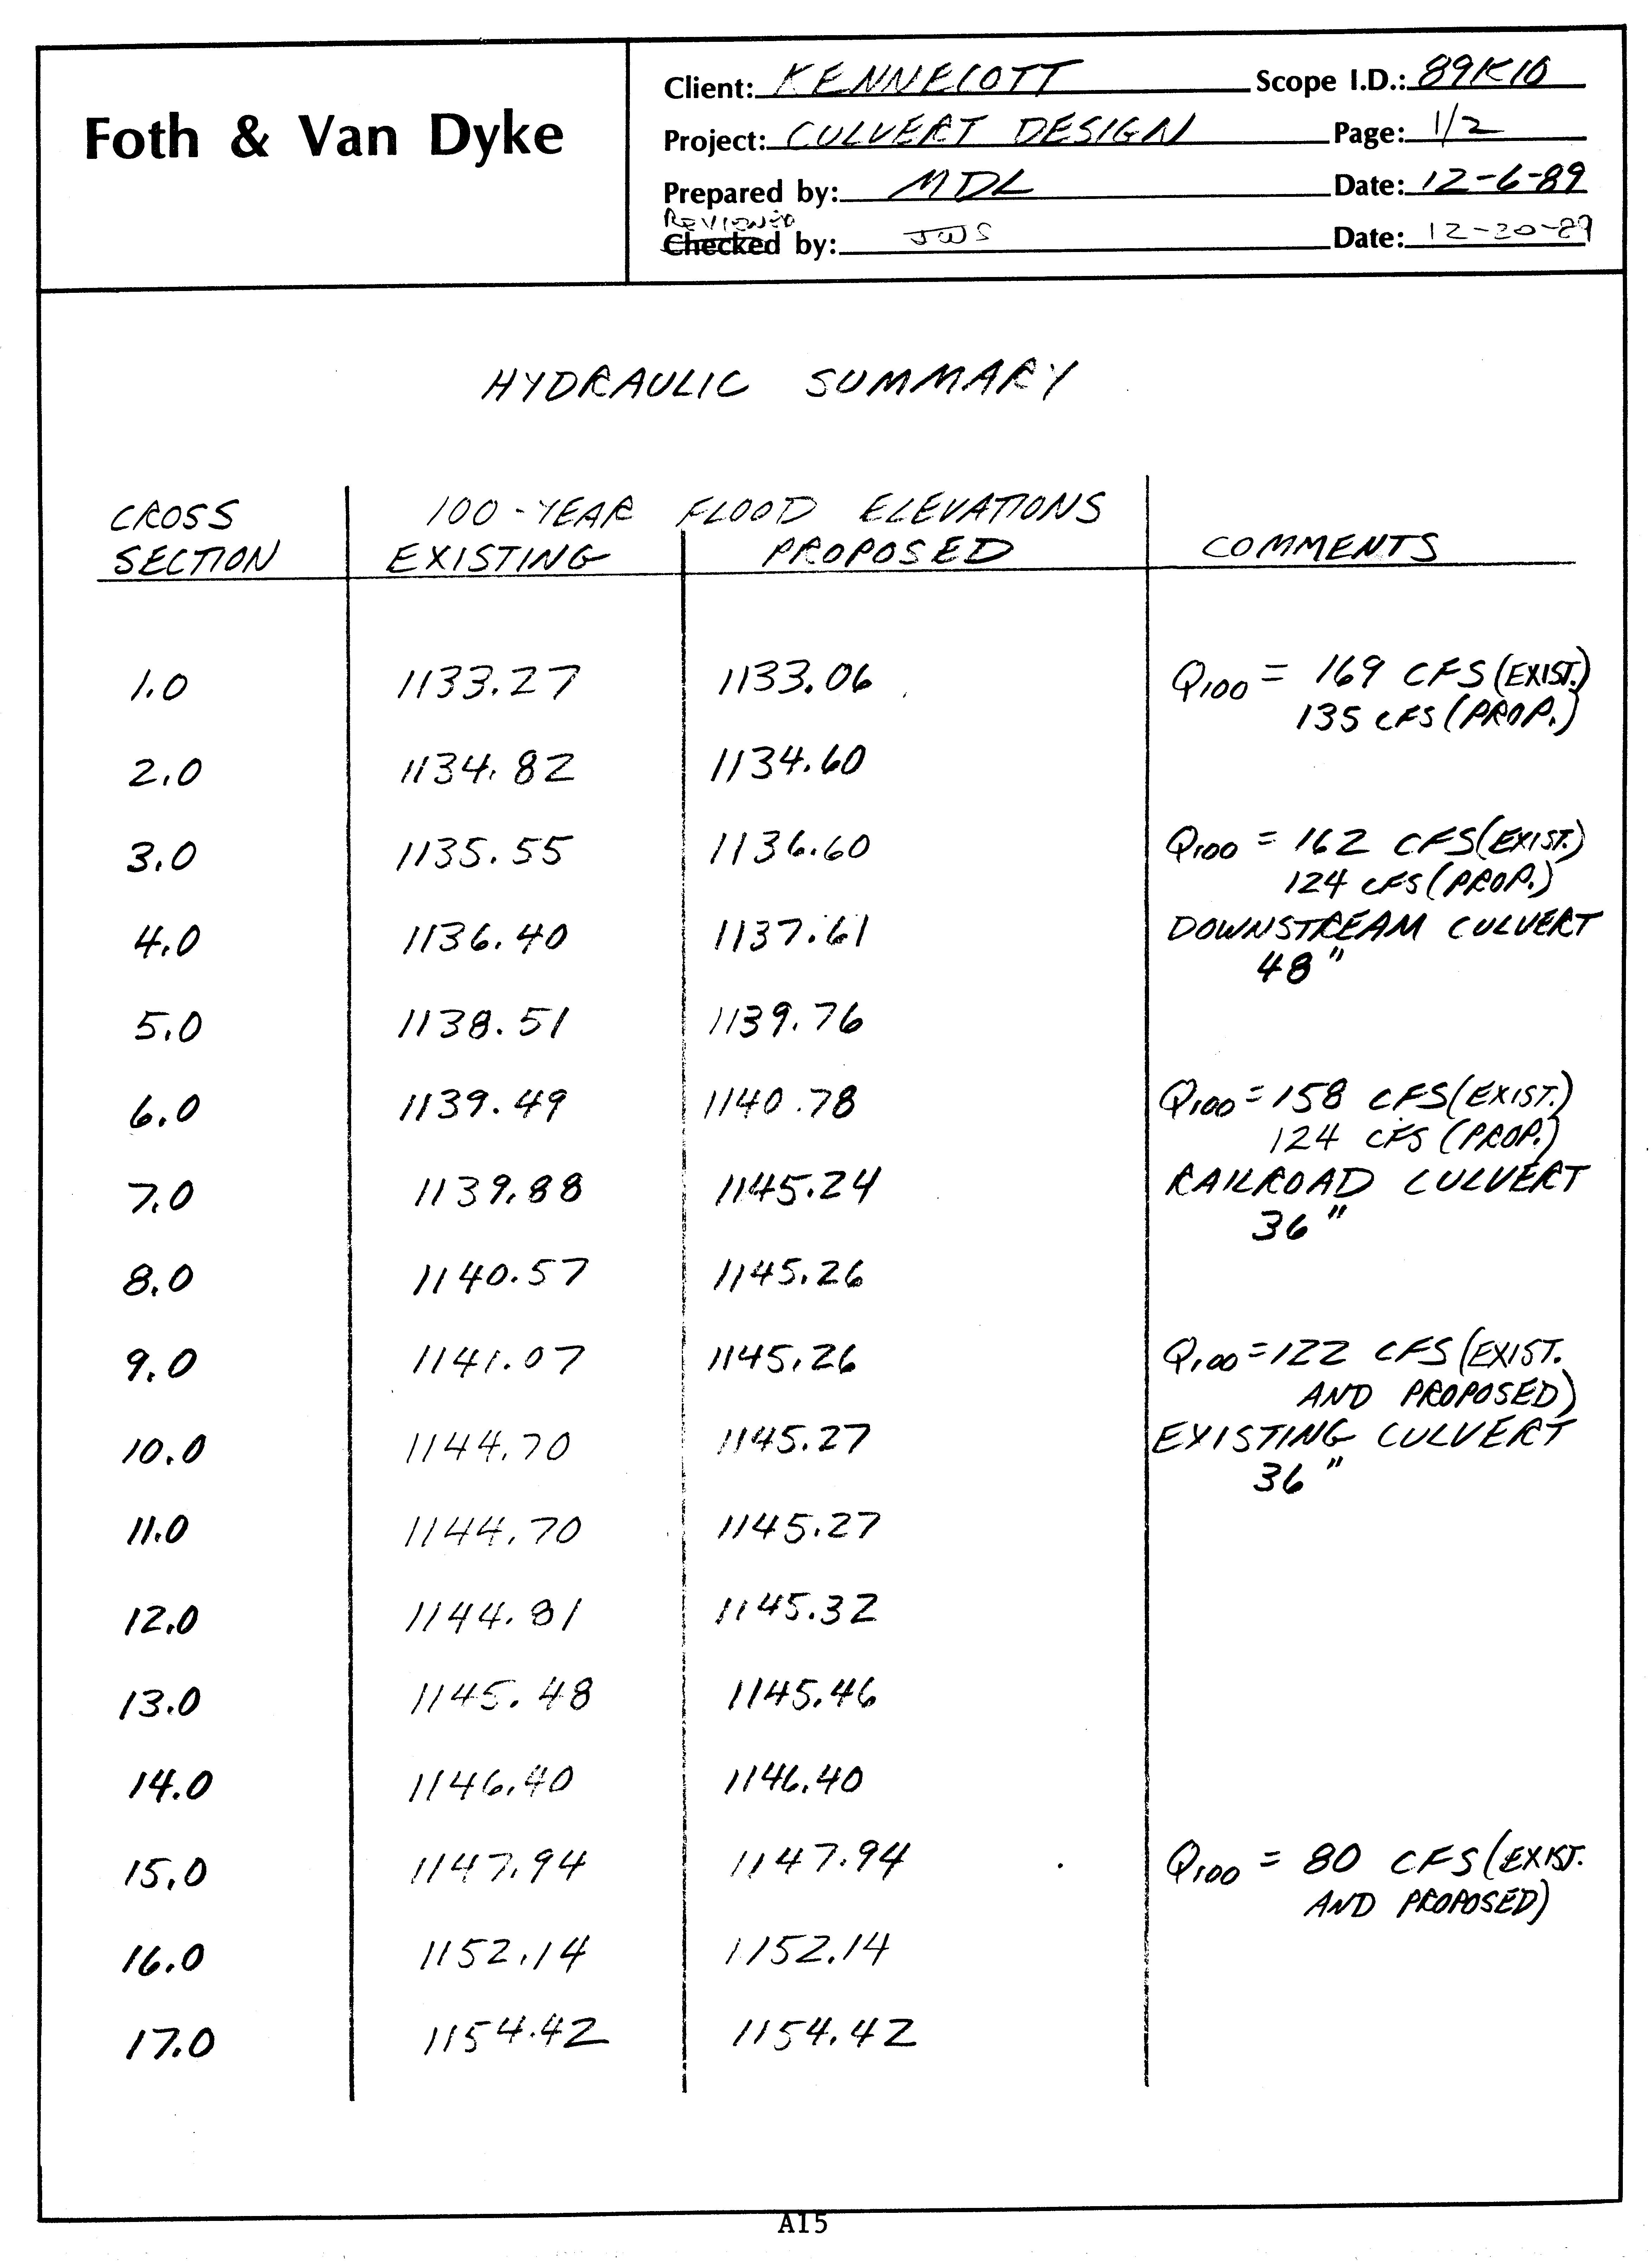 Foth & Van Dyke
Client: KENNECOTT Scope I.D.: 89K10
Project: CULVERT DESIGN Page: 1/2
Prepared by: MDL Date: 12-6-89
REVIEWED
Checked by: JWS Date: 12-20-89
HYDRAULIC SUMMARY
CROSS 100-YEAR FLOOD ELEVATIONS
SECTION EXISTING PROPOSED COMMENTS
1.0 1133.27 1133.06 Q100 = 169 CFS (EXIST.)
135 CFS (PROP.)
2.0 1134.82 1134.60
3.0 1135.55 1136.60 Q100 = 162 CFS (EXIST.)
124 CFS (PROP.)
4.0 1136.40 1137.61 DOWNSTREAM CULVERT
48"
5.0 1138.51 1139.76
6.0 1139.49 1140.78 Q100 = 158 CFS (EXIST.)
124 CFS (PROP.)
7.0 1139.88 1145.24 RAILROAD CULVERT
36"
8.0 1140.57 1145.26
9.0 1141.07 1145.26 Q100 = 122 CFS (EXIST.
AND PROPOSED)
10.0 1144.70 1145.27 EXISTING CULVERT
36"
11.0 1144.70 1145.27
12.0 1144.81 1145.32
13.0 1145.48 1145.46
14.0 1146.40 1146.40
15.0 1147.94 1147.94 Q100 = 80 CFS (EXIST.
AND PROPOSED)
16.0 1152.14 1152.14
17.0 1154.42 1154.42
A15